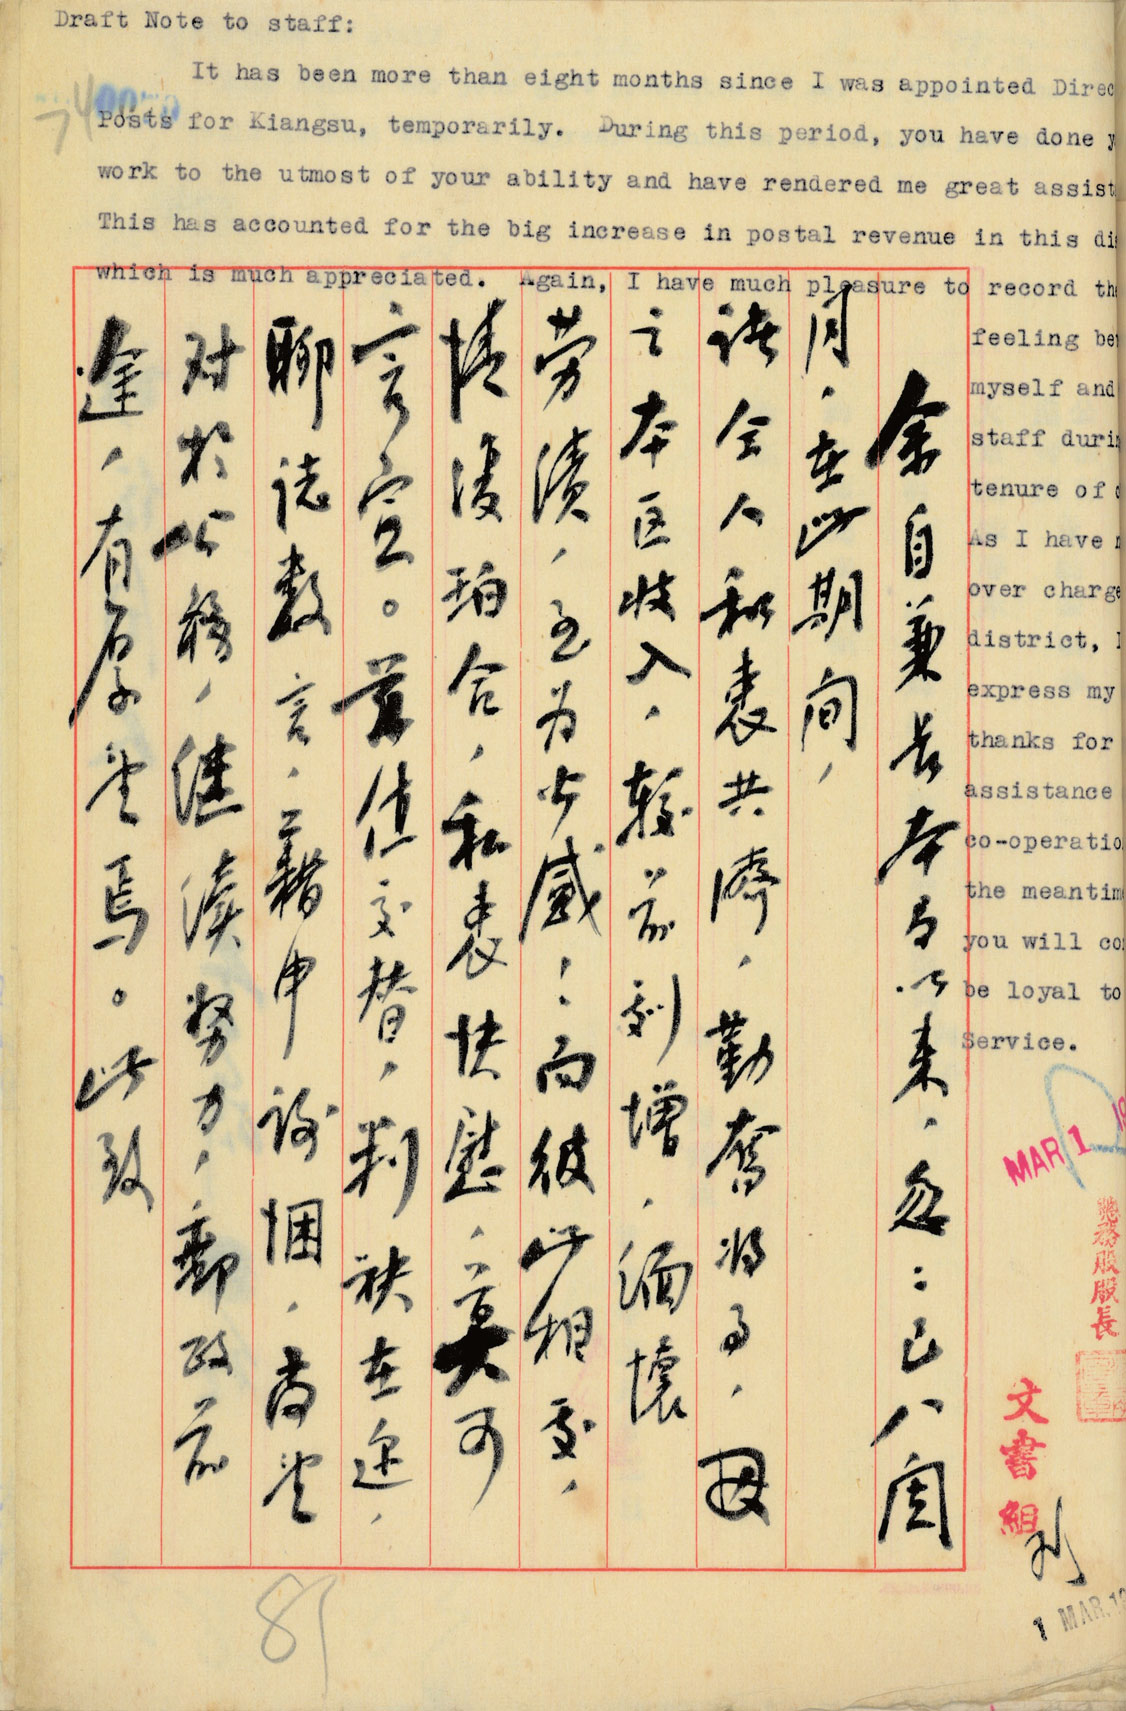 Draft Note to staff:
It has been more than eight months since I was appointed Direc
Posts for Kiangsu, temporarily. During this period, you have done y
work to the utmost of your ability and have rendered me great assist
This has accounted for the big increase in postal revenue in this di
which is much appreciated. Again, I have much pleasure to record th
feeling be
myself and
staff duri
tenure of
As I have
over charge
district, I
express my
thanks for
assistance
co-operatio
the meantim
you will co
be loyal to
Service.
余自兼長本局以來，忽忽已八閱
月，在此期間，
諸仝人和衷共濟，勤奮將事，
之本區收入，較前劇增，緬懷
勞績，至为步感；而彼此相處，
情淺珀合，私衷快慰，莫可
言宣。茲值交替，判袂在迩，
聊誌數言，藉申謝悃，尚望
对於公務，継續努力，郵政前
途，有厚望焉。此致
MAR 1
總務股股長
文書組
1 MAR.
81